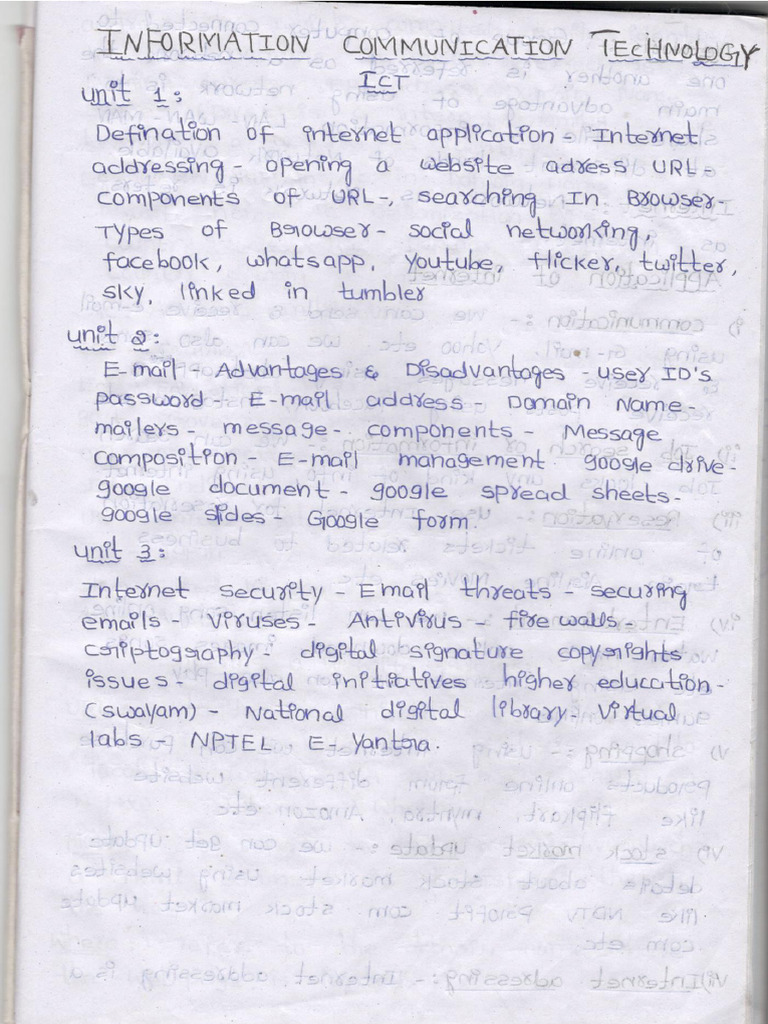 INFORMATION COMMUNICATION TECHNOLOGY
ICT
unit 1:
Defination of internet application - Internet
addressing - opening a website adress URL-
components of URL-, searching In Browser-
Types of Browser- social networking,
facebook, whatsapp, youtube, flicker, twitter,
sky, linked in tumbler
unit 2:
E-mail - Advantages & Disadvantages - user ID's
password- E-mail address - Domain Name-
mailers - message - components - Message
composition - E-mail management google drive-
google document - google spread sheets-
google slides- Google form.
unit 3:
Internet security - Email threats - securing
emails - viruses- Antivirus - fire walls-
criptography- digital signature copyrights
issues- digital initiatives higher education-
(swayam) - National digital library- virtual
labs - NPTEL E- Yantra.